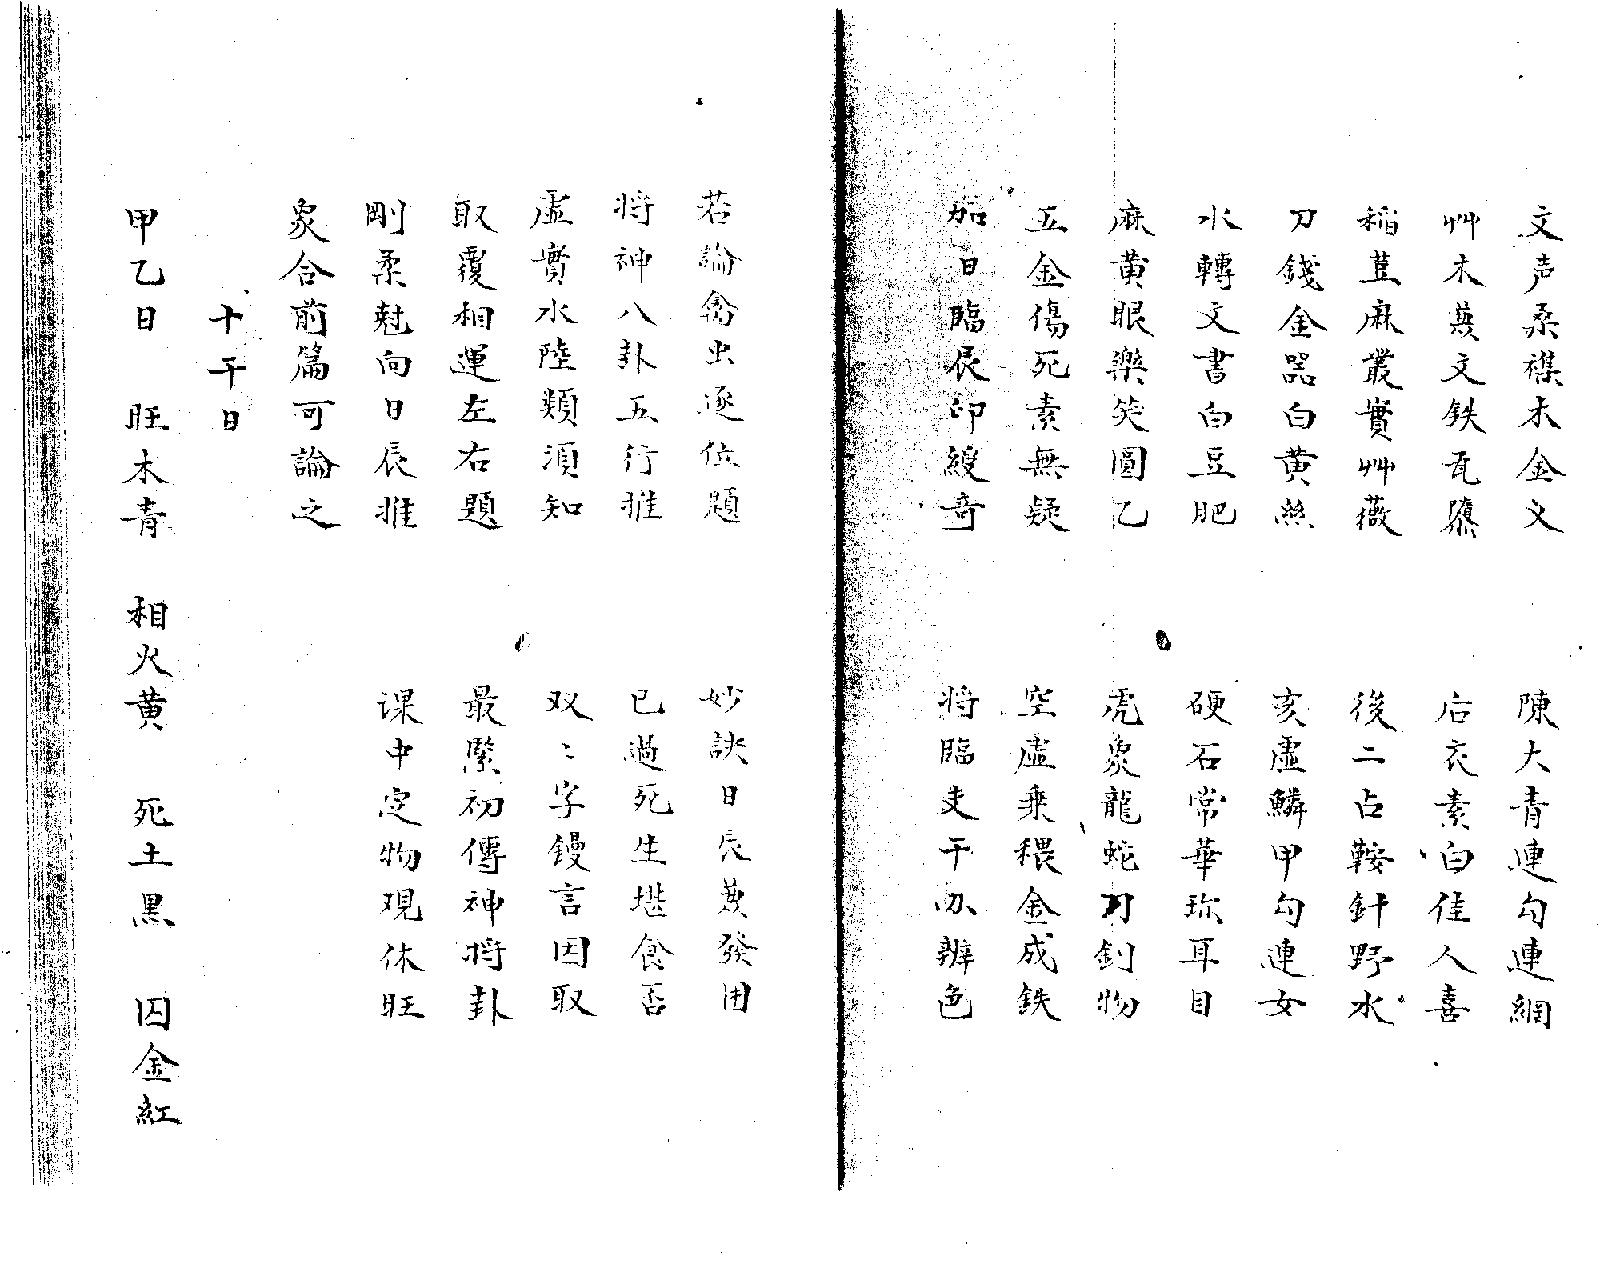 文声柔襍木金文　陳大青連勾連網
艸木蒺文鉄瓦隳　后衣素白佳人喜
稲荳麻叢實艸薇　後二占鞍針野水
刀錢金器白黄絲　亥虛鱗甲勾連女
水轉文書白豆肥　硬石常華珎耳目
麻黄眼藥笑圓乙　虎象龍蛇刀釗物
五金傷死素無疑　空虛乘穩金成鉄
加日臨辰印綬奇　將臨支干亦辨色
若論禽虫逐位題　妙訣日辰兼發用
將神八卦五行推　已過死生堪食否
虛實水陸類須知　双〻字鏝言因取
取覆相運左右題　最緊初傳神將卦
剛柔尅向日辰推　课中定物观休旺
象合前篇可論之
十干日
甲乙日　旺木青　相火黄　死土黑　囚金紅